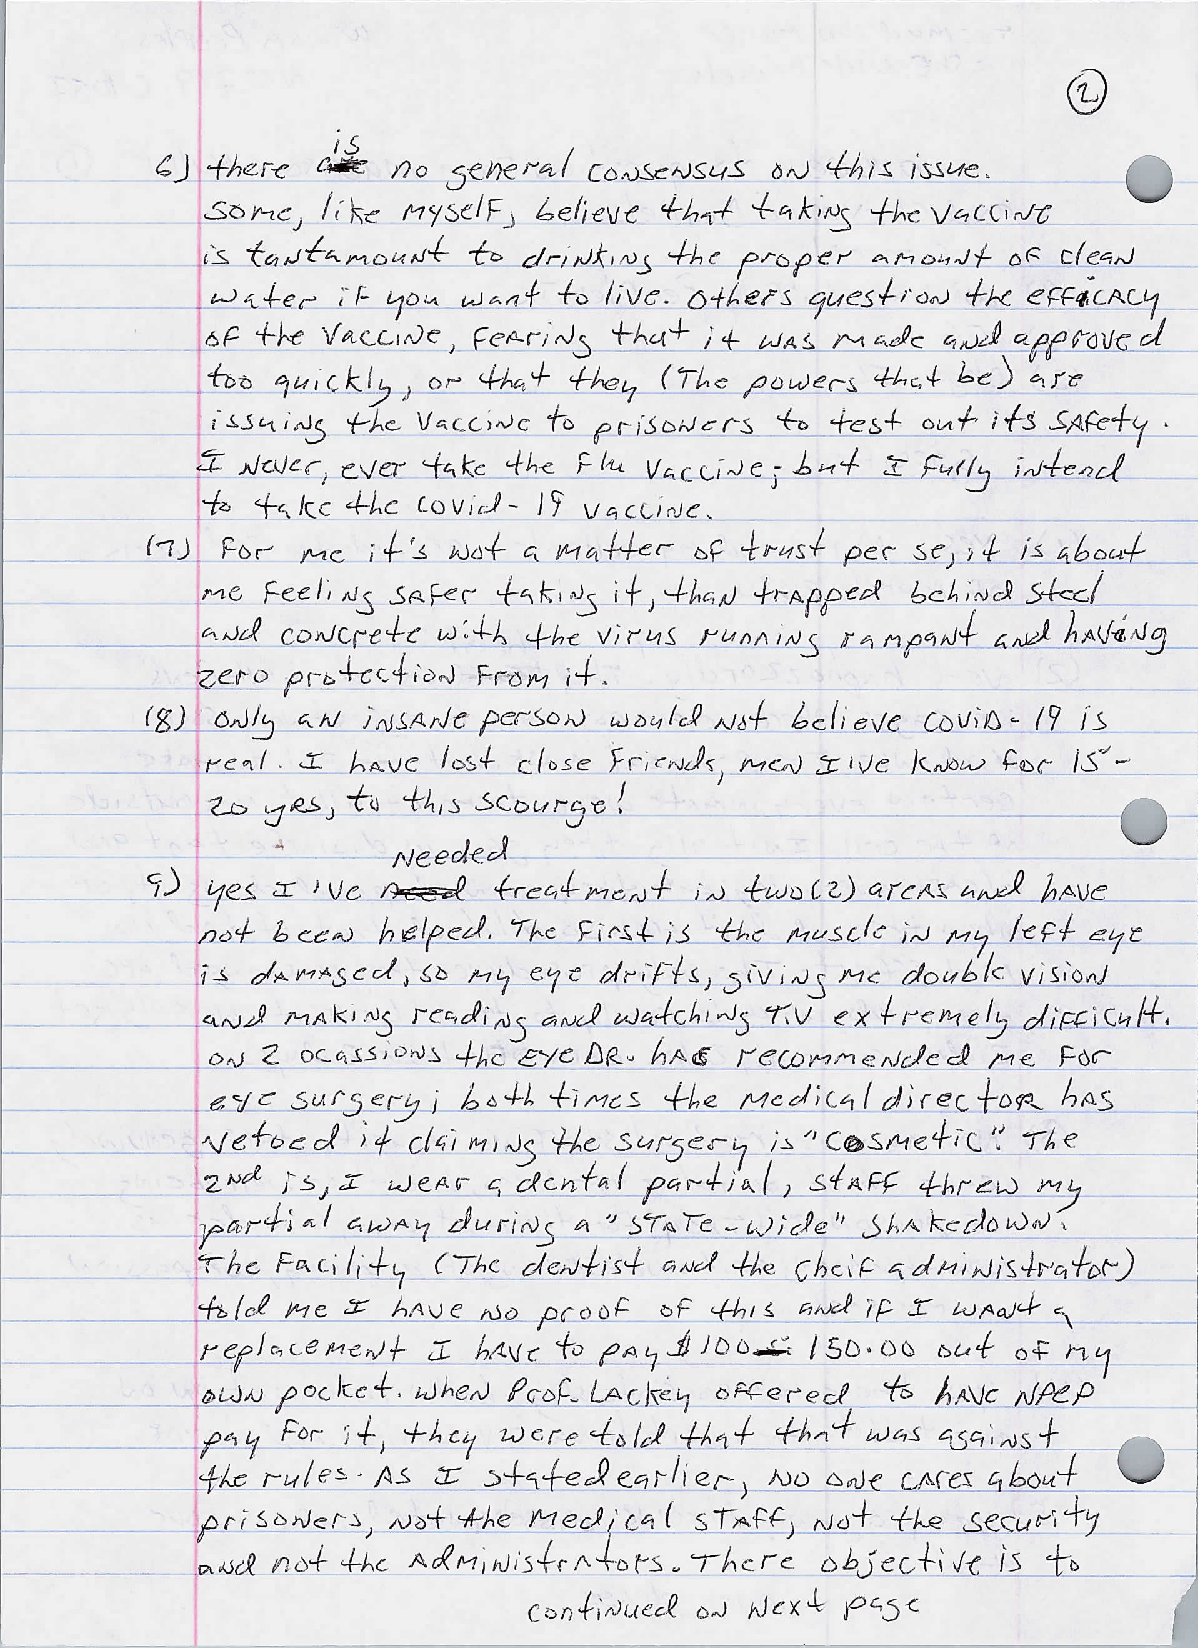 2
6) there is no general consensus on this issue.
some, like myself, believe that taking the vaccine
is tantamount to drinking the proper amount of clean
water if you want to live. others question the efficacy
of the vaccine, fearing that it was made and approved
too quickly, or that they (The powers that be) are
issuing the vaccine to prisoners to test out its safety.
I never, ever take the Flu vaccine; but I fully intend
to take the covid-19 vaccine.
(7) For me it's not a matter of trust per se, it is about
me feeling safer taking it, than trapped behind steel
and concrete with the virus running rampant and having
zero protection from it.
(8) only an insane person would not believe covid-19 is
real. I have lost close friends, men I've know for 15-
20 yrs, to this scourge!
9) yes I've Needed treatment in two(2) areas and have
not been helped. The first is the muscle in my left eye
is damaged, so my eye drifts, giving me double vision
and making reading and watching T.V extremely difficult.
on 2 ocassions the EYE DR. has recommended me for
eye surgery; both times the medical director has
vetoed it claiming the surgery is "cosmetic". The
2nd is, I wear a dental partial, staff threw my
partial away during a "STATE-wide" shakedown.
The Facility (The dentist and the cheif administrator)
told me I have no proof of this and if I want a
replacement I have to pay $100 150.00 out of my
own pocket. when Prof. Lackey offered to have NPEP
pay for it, they were told that that was against
the rules. As I stated earlier, no one cares about
prisoners, not the medical staff, not the security
and not the Administrators. There objective is to
continued on next page